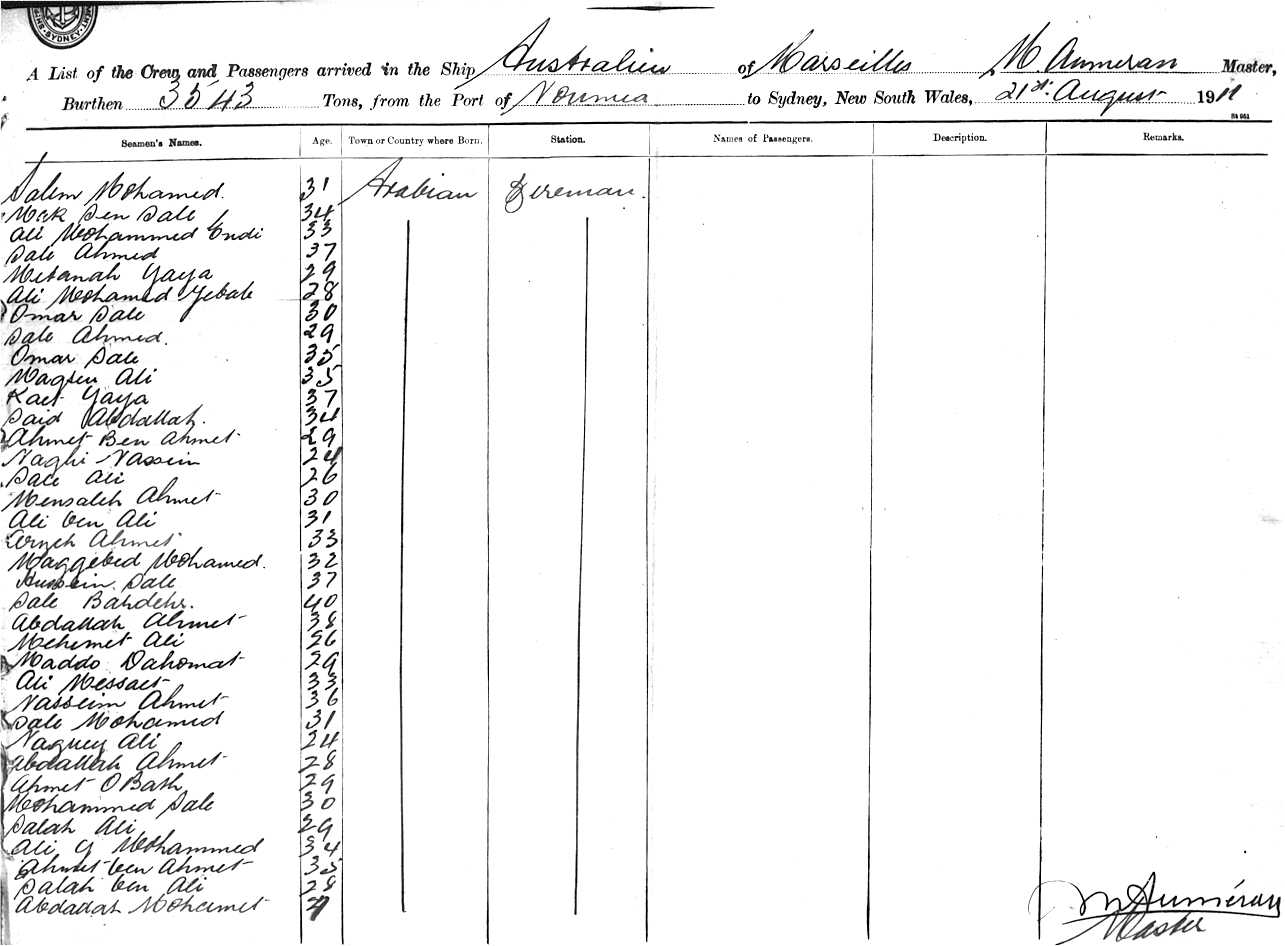 SYDNEY
A List of the Crew and Passengers arrived in the Ship Australien of Marseilles M. Aumeran Master,
Burthen 3543 Tons, from the Port of Noumea to Sydney, New South Wales, 21st August 1911
Seamen's Names. Age. Town or Country where Born. Station. Names of Passengers. Description. Remarks.
Salem Mohamed. 31 Arabian Fireman.
Sale 34
Ali Mohammed Endi 33
Sale Ahmed 37
Metanah Yaya 29
Ali Mohamed Yebale 28
Omar Sale 30
Sale Ahmed. 29
Omar Sale 35
Magsen Ali 35
Kaet Yaya 37
Said Abdallah. 34
Ahmet Ben Ahmet 29
Naghi Nassein 24
Sale Ali 26
Mensaleh Ahmet 30
Ali ben Ali 31
Ahmet 33
Maggebed Mohamed. 32
Hussein Sale 37
Sale Bahdehr. 40
Abdallah Ahmet 38
Mehemet Ali 26
Maddo Dahomat 29
Ali Messaet 33
Nasseim Ahmet 36
Sale Mohamed 31
Naguey Ali 24
Abdallah Ahmet 28
Ahmet O Bath 29
Mohammed Sale 30
Salah Ali 29
Ali G Mohammed 34
Ahmet ben Ahmet 35
Salah ben Ali 28
Abdallah Mohamet
M Auméran
Master